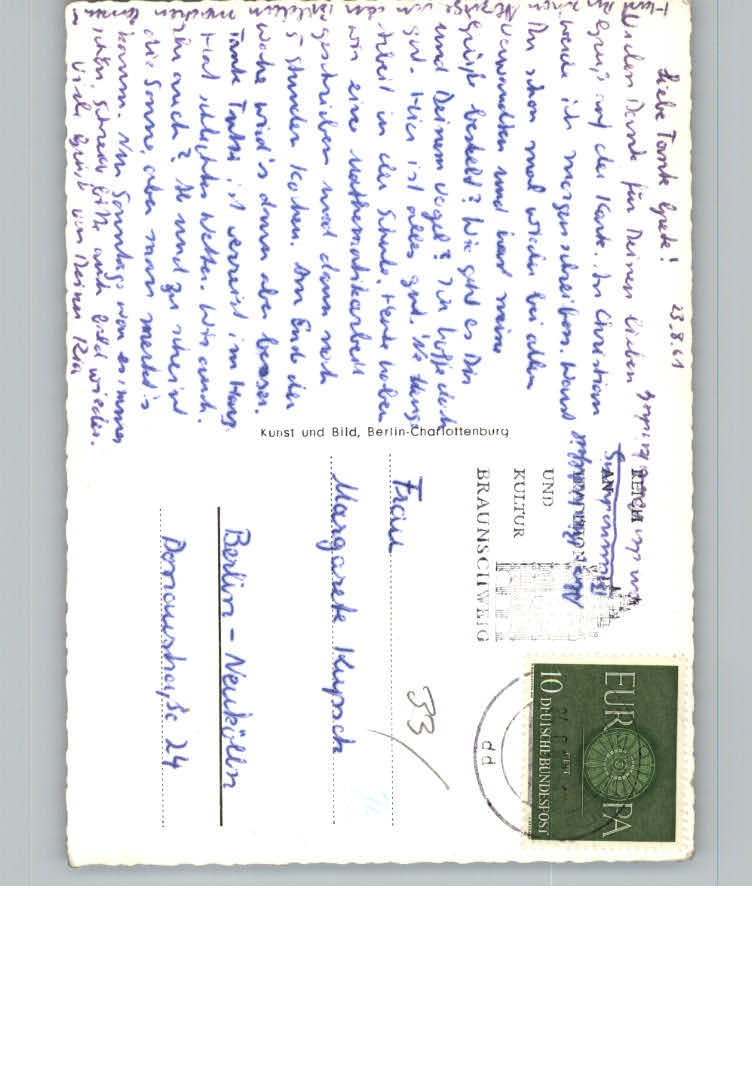 23.8.61
Liebe Tante Grete!
Vielen Dank für Deinen lieben
Gruß auf der Karte. An Christian
werde ich morgen schreiben. Warst
Du schon mal wieder bei allen
Verwandten und hast meine
Grüße bestellt? Wie geht es Dir
und Deinem Vogel? Ich hoffe doch
gut. Hier ist alles gut.
Arbeit in der Schule. Heute haben
wir eine Mathematikarbeit
geschrieben und dann noch
5 Stunden
Woche wird's dann aber besser.
Tante ist verreist im Harz.
Hat schlechtes Wetter. Wir auch.
Ihr auch? Ab und zu scheint
die Sonne, aber man merkt's
kaum. Nur Sonntags war es immer
schön. Schreib bitte auch bald wieder.
Viele Grüße von Deiner Ria
Kunst und Bild, Berlin-Charlottenburg
REICH
AN
TRADITION
UND
KULTUR
BRAUNSCHWEIG
EUROPA
10 DEUTSCHE BUNDESPOST
dd
33
Frau
Margarete Kupsch
Berlin - Neukölln
Donaustraße 24